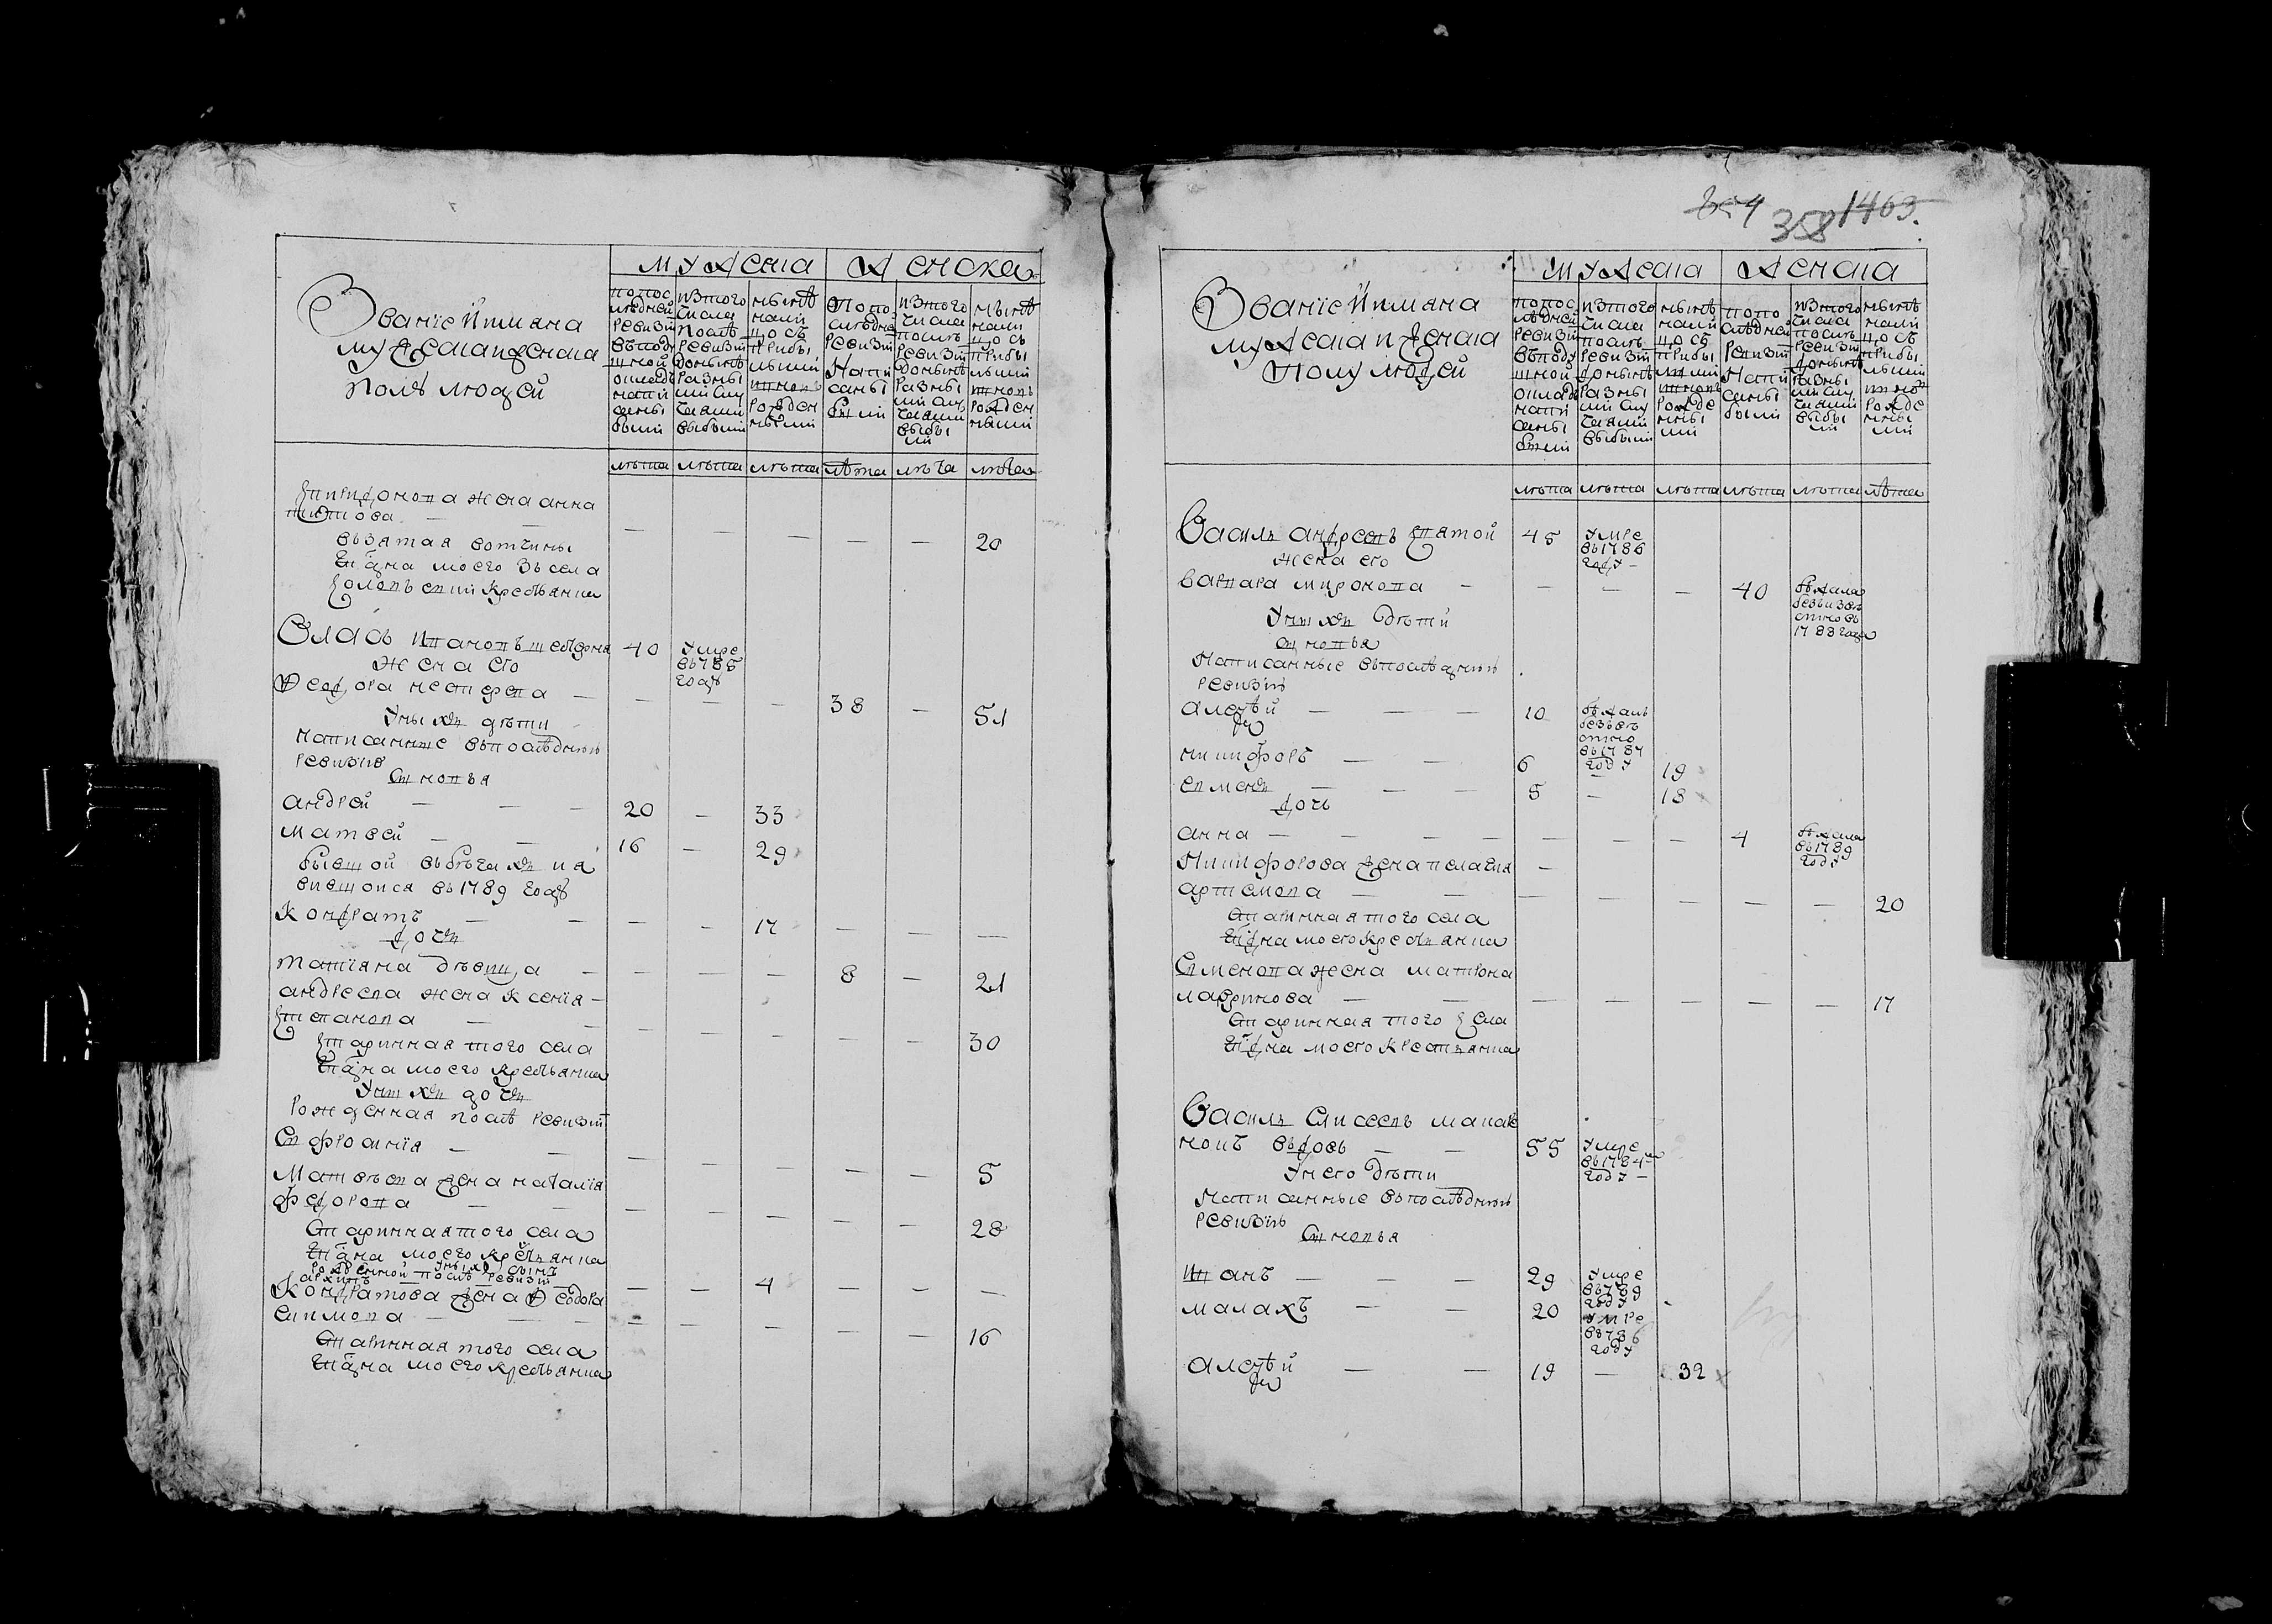 Званіе Иимяна
мужеска и женска
полѣ людей
мужеска
женска
попос
лѣдней
ревизіи
въподу
шной
окладъ
напи
саны
были
изтого
числа
послѣ
ревизіи
донынѣ
разны
ми слу
чаями
выбыли
нынѣ
нали
цо съ
прибы
лыми
вновь
рожден
ными
Попо
слѣдне
ревизіи
напи
саны
были
изтого
числа
послъ
ревизіи
донынѣ
разны
ми слу
чаями
выбы
ли
нынѣ
нали
цо съ
прибы
лыми
вновь
рожден
ными
лѣта лѣта лѣта лѣта лѣта лѣта
спиридонова жена анна
титова — — — — — — — — 20
взятая вотчины
гдна моего зъ села
крестьянка
Власъ ивановъ 40 умре
въ1785
годѣ
жена его
Ѳедора — — — — 38 — 51
уныхъ дѣти
написанные въпослѣднѣй
ревизіе
сыновья
андрей — — — 20 — 33
матвей — — 16 — 29
бывшой въбѣгахъ и я
вившойся въ1789 годѣ
Кондратъ — — — — 17 — — —
дочь
татіяна дѣвица — — — — 8 — 21
андреева жена ксенія —
степанова — — — — — — — 30
старинная того села
гдна моего крестьянка
уныхъ дочь
рожденная послѣ ревизіи
Евфросинія — — — — — — — 5
Матвѣева жена наталія
федорова — — — — — — — 28
старинная того села
гдна моего крестьянка
рожденной уныхъ сынъ
архипъ послѣ ревизіи — — 4 — — —
Кондратова жена Ѳедора
— — — — — — — 16
старинная того села
гдна моего крестьянка
358 1463.
Званіе Иимяна
мужеска и женска
Полу людей
мужеска
женска
попос
лѣдней
ревизіи
въподу
шной
окладѣ
напи
саны
были
изтого
числа
послъ
ревизіи
донынѣ
разны
ми слу
чаями
выбыли
нынѣ
нали
цо съ
прибы
лыми
вновь
рожде
нны
ми
попо
слѣдней
ревизіи
напи
саны
были
изтого
числа
послъ
ревизіи
донынѣ
разны
ми слу
чаями
выбы
ли
нынѣ
нали
цо съ
прибы
лыми
вновь
рожде
нны
ми
лѣта лѣта лѣта лѣта лѣта лѣта
Василъ андреевъ 45 умре
въ1786
году —
жена его
варвара миронова — — — — 40 бѣжала
безъизвѣ
стно въ
1788 годѣ
уныхъ дѣти
сыновья
написанные въпослѣднѣй
ревизіѣ
алексѣй — — — 10 бѣжалъ
безъвѣ
стно
въ1787
году
никифоръ — — 6 — 19
семенъ — — — 5 — 18
дочь
анна — — — — — — — 4 бѣжала
въ1789
году
Никифорова жена пелагея —
артемова — — — — — — — 20
старинная того села
гдна моего крестьянка
Семенова жена матрона
лавринова — — — — — — — 17
старинная того села
гдна моего крестьянка
Василъ
вдовъ — — 55 умре
въ1784м
году —
унего дѣти
написанные въпослѣднѣй
ревизіѣ
сыновья
иванъ — — — 29 умре
въ1789
году
малахъ — — 20 умре
въ1786
году
алексѣй — — 19 — 32